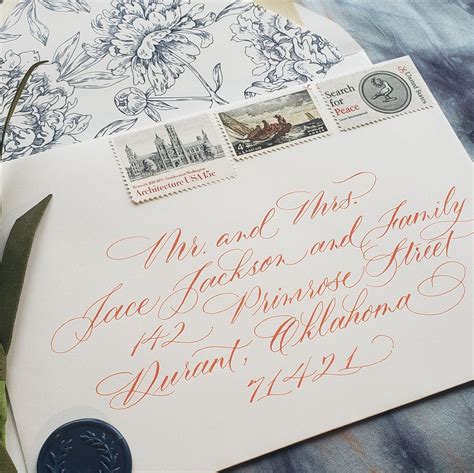 Architecture USA 15c
4¢
Search
for
Peace
5c United States
Mr. and Mrs.
Jace Jackson and Family
142 Primrose Street
Durant, Oklahoma
71421